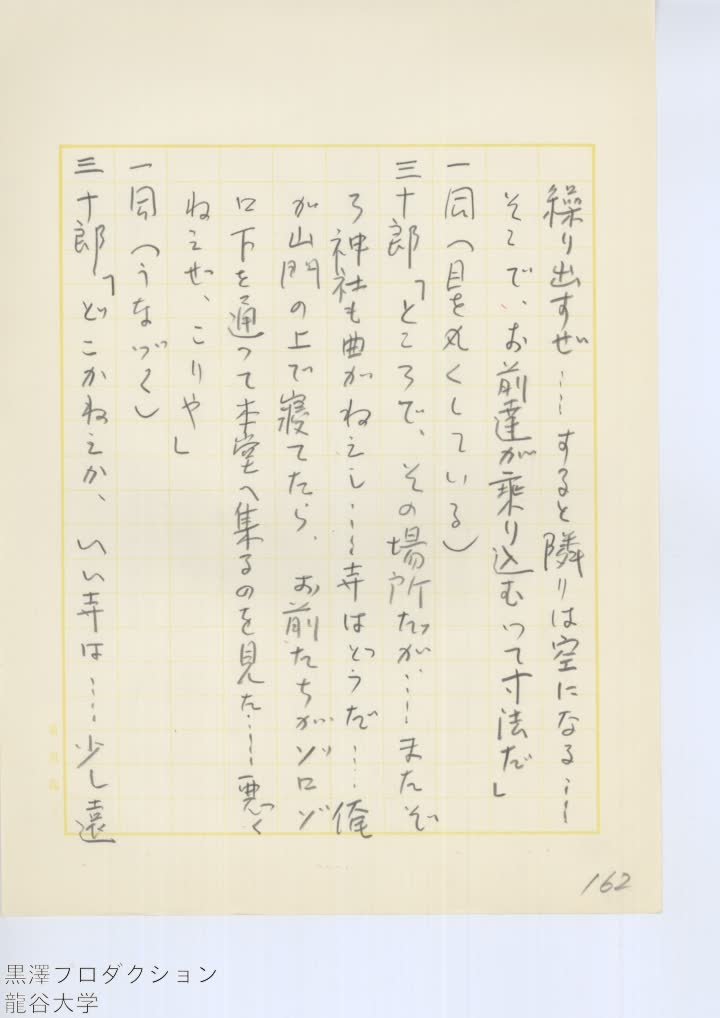 繰り出すぜ……すると隣りは空になる……
そこで、お前達が乗り込むって寸法だ」
一同（目を丸くしている）
三十郎「ところで、その場所だが、……またぞ
ろ神社も曲がねえし……寺はどうだ……俺
が山門の上で寝てたら、お前たちがゾロゾ
ロ下を通って本堂へ集るのを見た……悪く
ねえぜ、こりや」
一同（うなづく）
三十郎「どこかねえか、いい寺は……少し遠
162
黒澤プロダクション
龍谷大学